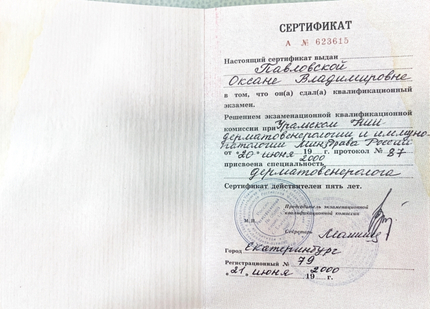 СЕРТИФИКАТ
А № 623615
Настоящий сертификат выдан
Павловской
Оксане Владимировне
в том, что он(а) сдал(а) квалификационный
экзамен.
Решением экзаменационной квалификационной
комиссии при Уральском НИИ
дерматовенерологии и иммуно-
патологии Минздрава России
от "20" июня 19 г. протокол № 87
2000
присвоена специальность
дерматовенеролога
Сертификат действителен пять лет.
Председатель экзаменационной
квалификационной комиссии
М.П.
Секретарь
Город Екатеринбург
Регистрационный № 79
"21" июня 2000
19 г.